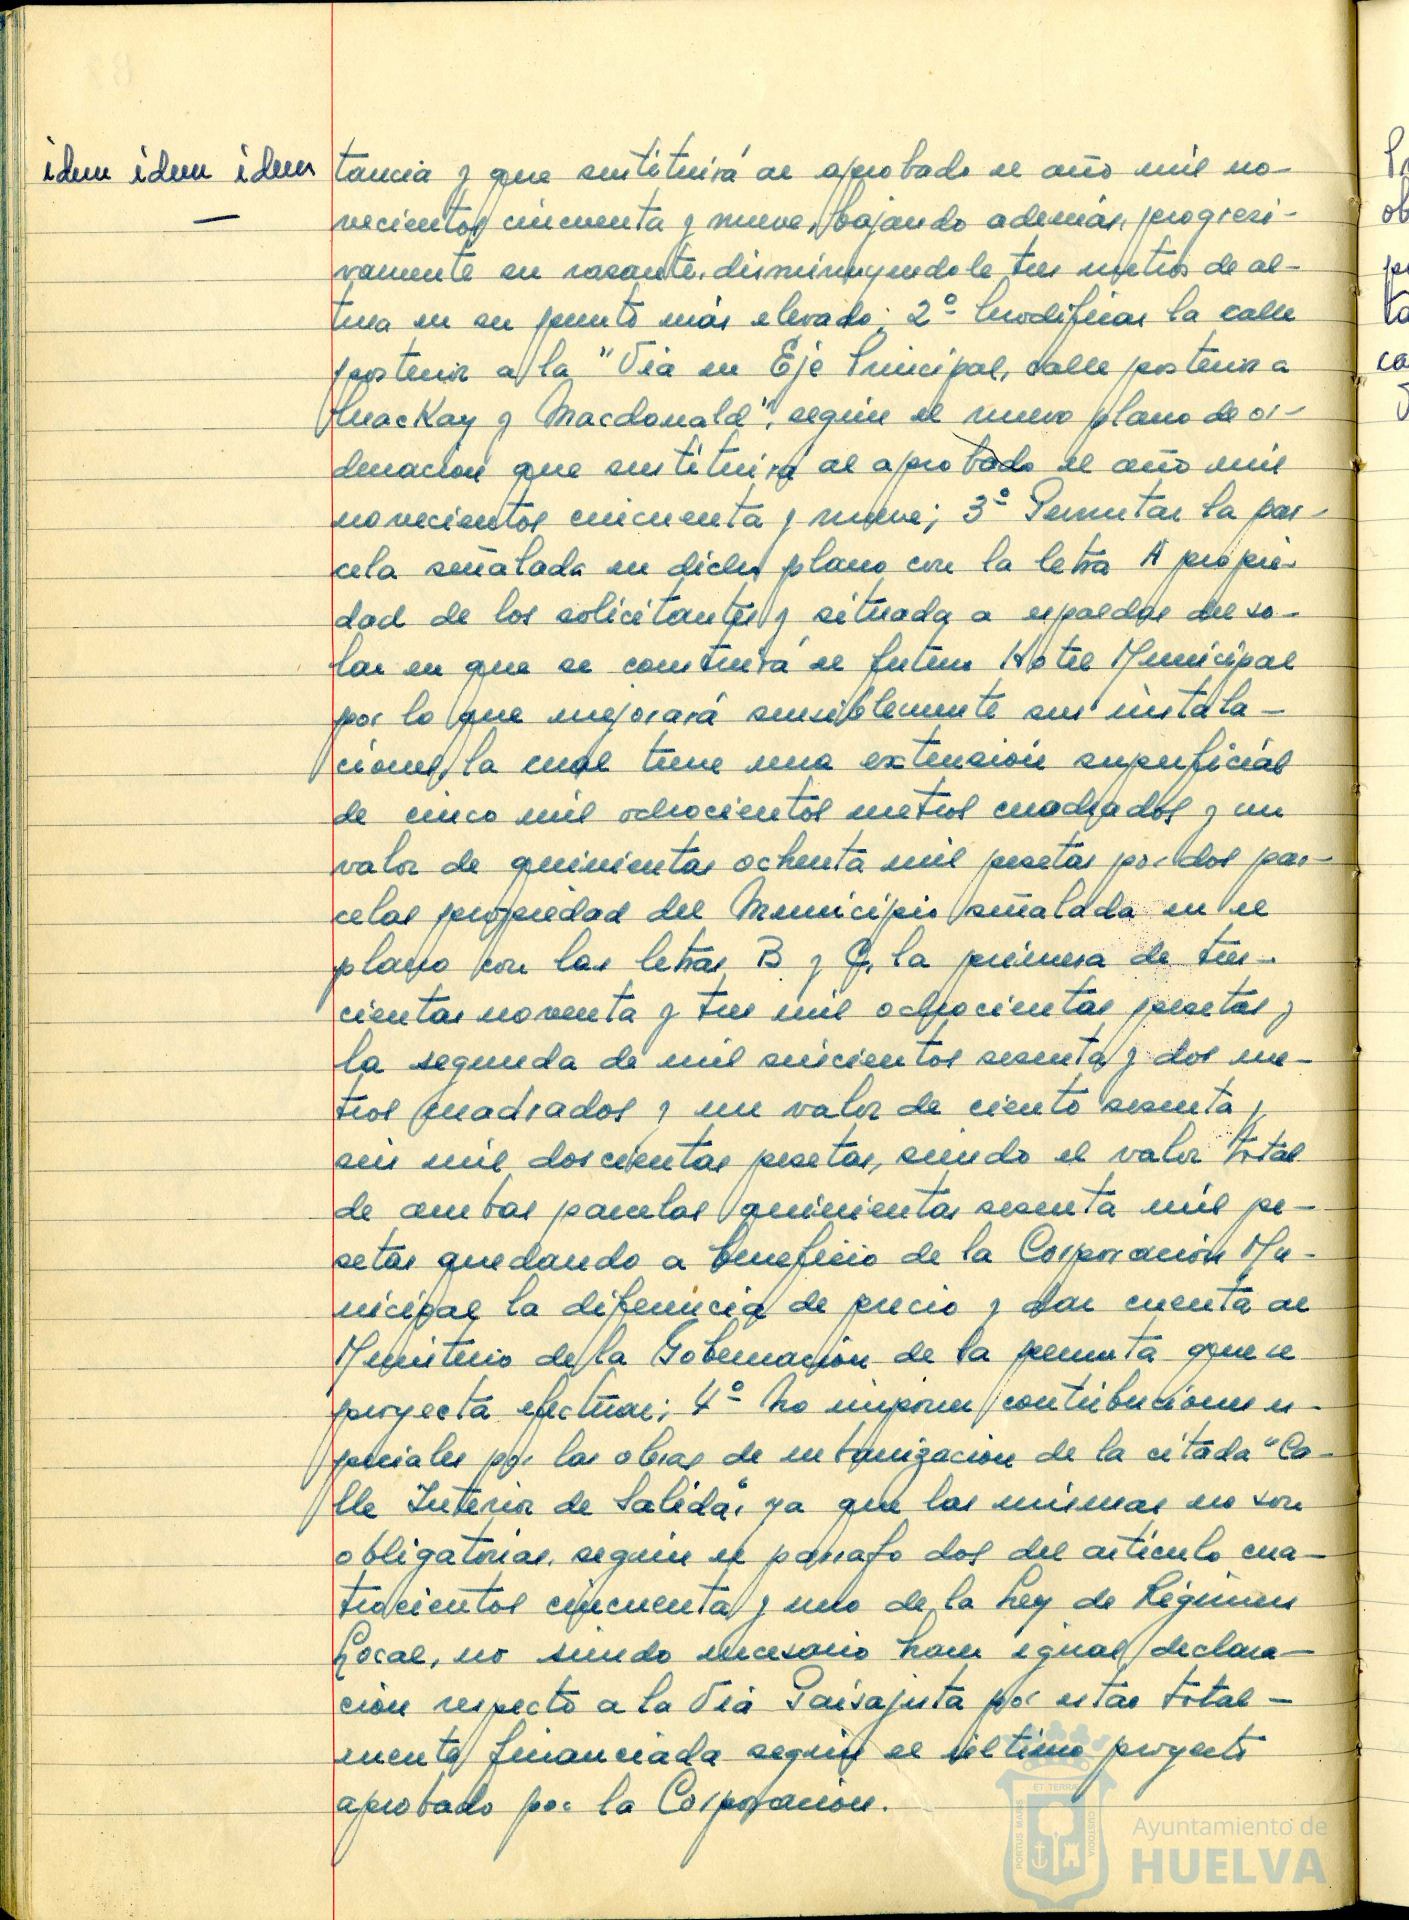 idem idem idem
tancia y que sustituirá al aprobado el año mil no-
vecientos cincuenta y nueve, bajando además, progresi-
vamente su rasante, disminuyendole tres metros de al-
tura en su punto más elevado; 2º Modificar la calle
posterior a la "Via en Eje Principal, calle posterior a
MacKay y Macdonald", según el nuevo plano de or-
denación que sustituirá al aprobado el año mil
novecientos cincuenta y nueve; 3º Permutar la par-
cela señalada en dicho plano con la letra A propie-
dad de los solicitantes y situada a espaldas del so-
lar en que se construirá el futuro Hotel Municipal
por lo que mejorará sensiblemente sus instala-
ciones, la cual tiene una extensión superficial
de cinco mil ochocientos metros cuadrados y un
valor de quinientas ochenta mil pesetas por dos par-
celas propiedad del Municipio señalada en el
plano con las letras B y C, la primera de tres-
cientas noventa y tres mil ochocientas pesetas y
la segunda de mil seiscientos sesenta y dos me-
tros cuadrados y un valor de ciento sesenta y
seis mil doscientas pesetas, siendo el valor total
de ambas parcelas quinientas sesenta mil pe-
setas quedando a beneficio de la Corporación Mu-
nicipal la diferencia de precio y dar cuenta al
Ministerio de la Gobernación de la permuta que se
proyecta efectuar; 4º No imponer contribuciones es-
peciales por las obras de urbanización de la citada "Ca-
lle Interior de Salida", ya que las mismas no son
obligatorias, según el parrafo dos del artículo cua-
trocientos cincuenta y uno de la Ley de Régimen
Local, no siendo necesario hacer igual declara-
ción respecto a la Via Paisajista por estar total-
mente financiada según el último proyecto
aprobado por la Corporación.
ET TERRÆ
PORTUS MARIS
CUSTODIA
Ayuntamiento de
HUELVA